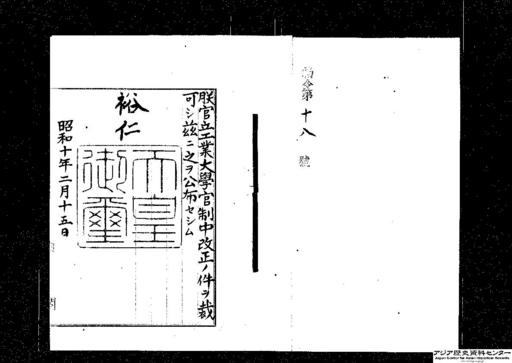 勅令第十八號
朕官立工業大學官制中改正ノ件ヲ裁
可シ茲ニ之ヲ公布セシム
裕仁
天皇御璽
昭和十年二月十五日
アジア歴史資料センター
Japan Center for Asian Historical Records